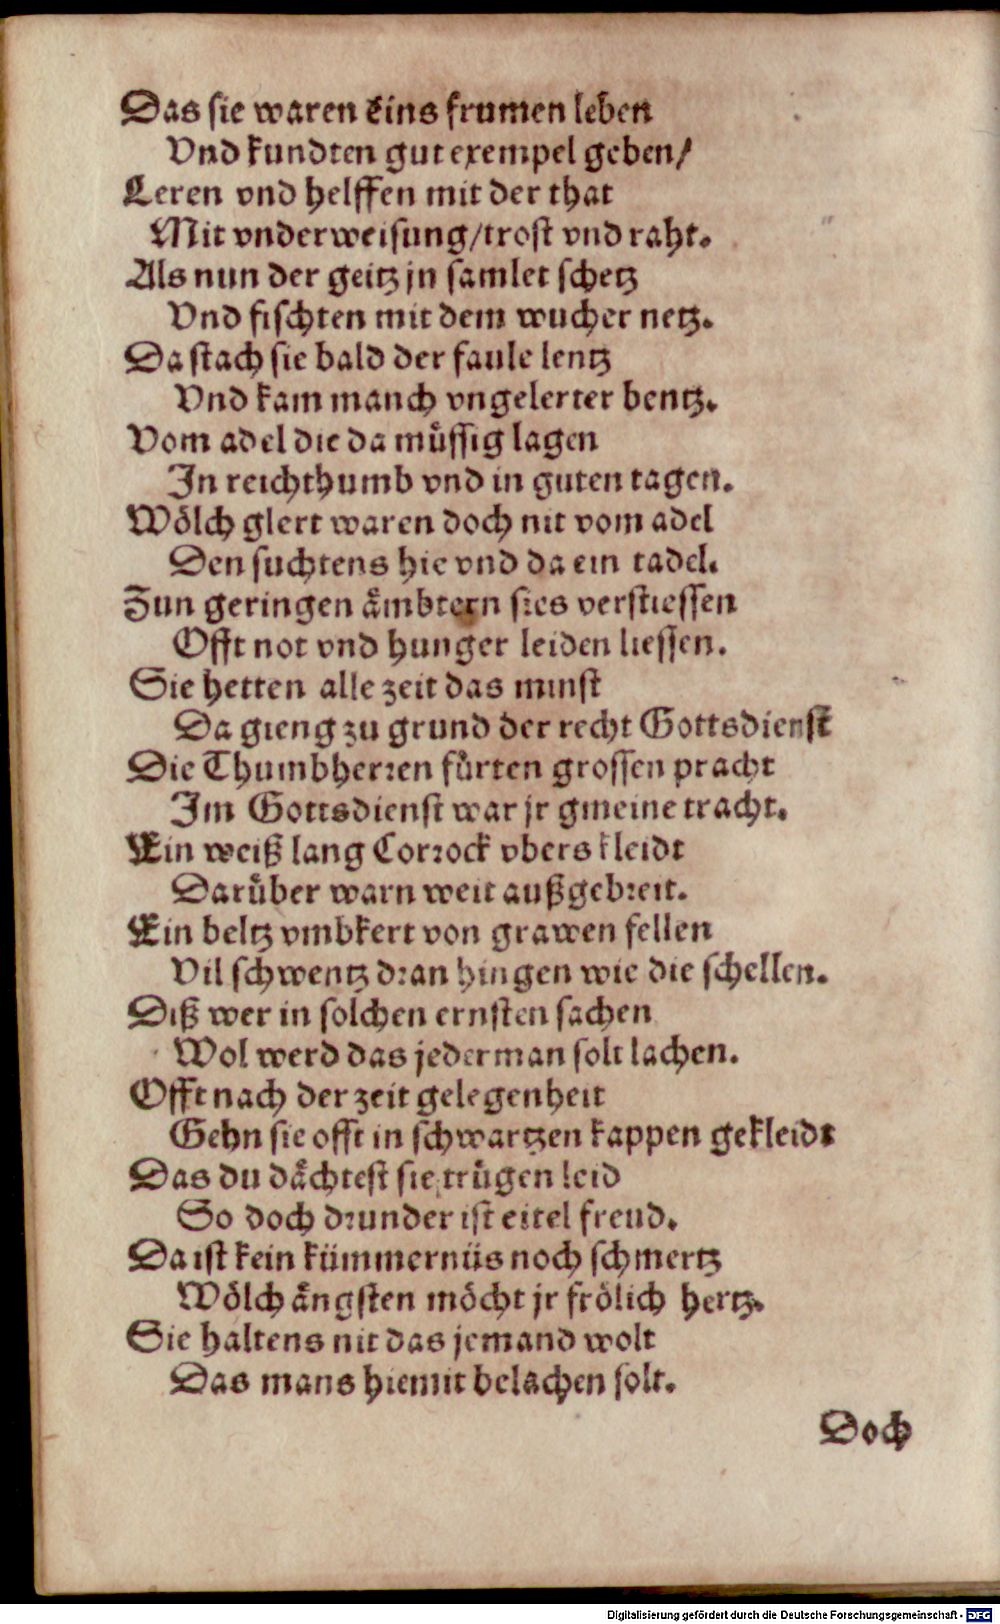 Das sie waren Eins frumen leben
Vnd kundten gut exempel geben/
Leren vnd helffen mit der that
Mit vnderweisung/trost vnd raht.
Als nun der geitz jn samlet schetz
Vnd fischten mit dem wucher netz.
Da stach sie bald der faule lentz
Vnd kam manch vngelerter bentz.
Vom adel die da muͤssig lagen
In reichthumb vnd in guten tagen.
Woͤlch glert waren doch nit vom adel
Den suchtens hie vnd da ein tadel.
Zun geringen aͤmbtern sies verstiessen
Offt not vnd hunger leiden liessen.
Sie hetten alle zeit das minst
Da gieng zu grund der recht Gottsdienst
Die Thumbherren fuͤrten grossen pracht
Im Gottsdienst war jr gmeine tracht.
Ein weiß lang Corrock vbers kleidt
Daruͤber warn weit außgebreit.
Ein beltz vmbkert von grawen fellen
Vil schwentz dran hingen wie die schellen.
Diß wer in solchen ernsten sachen
Wol werd das jederman solt lachen.
Offt nach der zeit gelegenheit
Gehn sie offt in schwartzen kappen gekleidt
Das du daͤchtest sie truͤgen leid
So doch drunder ist eitel freud.
Da ist kein kümmernüs noch schmertz
Woͤlch aͤngsten moͤcht jr froͤlich hertz.
Sie haltens nit das jemand wolt
Das mans hiemit belachen solt.
Doch
Digitalisierung gefördert durch die Deutsche Forschungsgemeinschaft - DFG